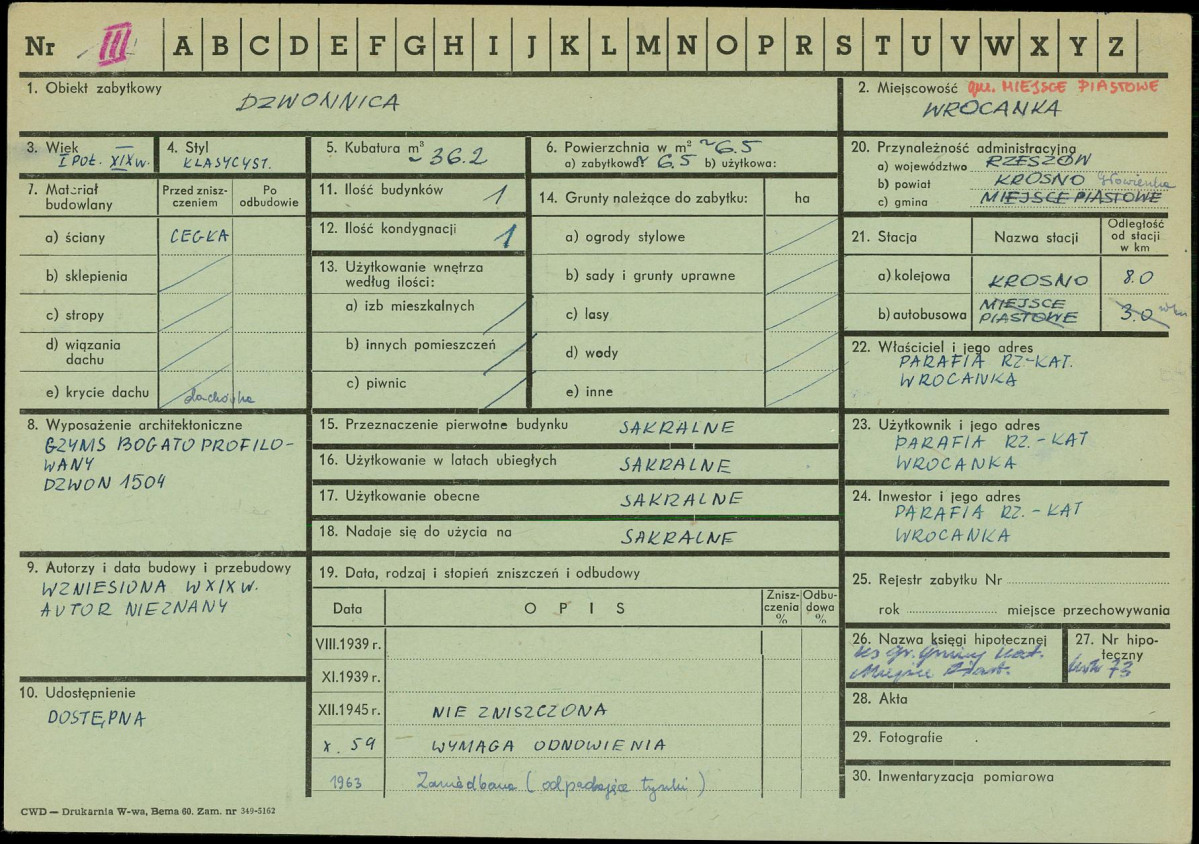 Nr III A B C D E F G H I J K L M N O P R S T U V W X Y Z
1. Obiekt zabytkowy
DZWONNICA
2. Miejscowość gm. MIEJSCE PIASTOWE
WROCANKA
3. Wiek
I POŁ. XIX w.
4. Styl
KLASYCYST.
5. Kubatura m³
~ 36.2
6. Powierzchnia w m² ~ 6.5
a) zabytkowa: ~ 6.5 b) użytkowa:
7. Materiał budowlany
Przed zniszczeniem
Po odbudowie
a) ściany CEGŁA
b) sklepienia
c) stropy
d) wiązania dachu
e) krycie dachu dachówka
8. Wyposażenie architektoniczne
GZYMS BOGATO PROFILO-
WANY
DZWON 1504
9. Autorzy i data budowy i przebudowy
WZNIESIONA W XIX w.
AUTOR NIEZNANY
10. Udostępnienie
DOSTĘPNA
11. Ilość budynków 1
12. Ilość kondygnacji 1
13. Użytkowanie wnętrza
według ilości:
a) izb mieszkalnych
b) innych pomieszczeń
c) piwnic
14. Grunty należące do zabytku: ha
a) ogrody stylowe
b) sady i grunty uprawne
c) lasy
d) wody
e) inne
15. Przeznaczenie pierwotne budynku SAKRALNE
16. Użytkowanie w latach ubiegłych SAKRALNE
17. Użytkowanie obecne SAKRALNE
18. Nadaje się do użycia na SAKRALNE
19. Data, rodzaj i stopień zniszczeń i odbudowy
Data
OPIS
Zniszczenia %
Odbudowa %
VIII.1939 r.
XI.1939 r.
XII.1945 r. NIE ZNISZCZONA
X. 59 WYMAGA ODNOWIENIA
1963 Zaniedbana (odpadające tynki)
20. Przynależność administracyjna
a) województwo RZESZÓW
b) powiat KROSNO Głowienka
c) gmina MIEJSCE PIASTOWE
21. Stacja
Nazwa stacji
Odległość od stacji w km
a) kolejowa KROSNO 8.0
b) autobusowa MIEJSCE PIASTOWE 3.0
22. Właściciel i jego adres
PARAFIA RZ-KAT.
WROCANKA
23. Użytkownik i jego adres
PARAFIA RZ.-KAT
WROCANKA
24. Inwestor i jego adres
PARAFIA RZ.-KAT
WROCANKA
25. Rejestr zabytku Nr
rok miejsce przechowywania
26. Nazwa księgi hipotecznej
ks gr. Gminy Kat.
Miejsce Piast.
27. Nr hipoteczny
73
28. Akta
29. Fotografie
30. Inwentaryzacja pomiarowa
CWD — Drukarnia W-wa, Bema 60. Zam. nr 349-5162